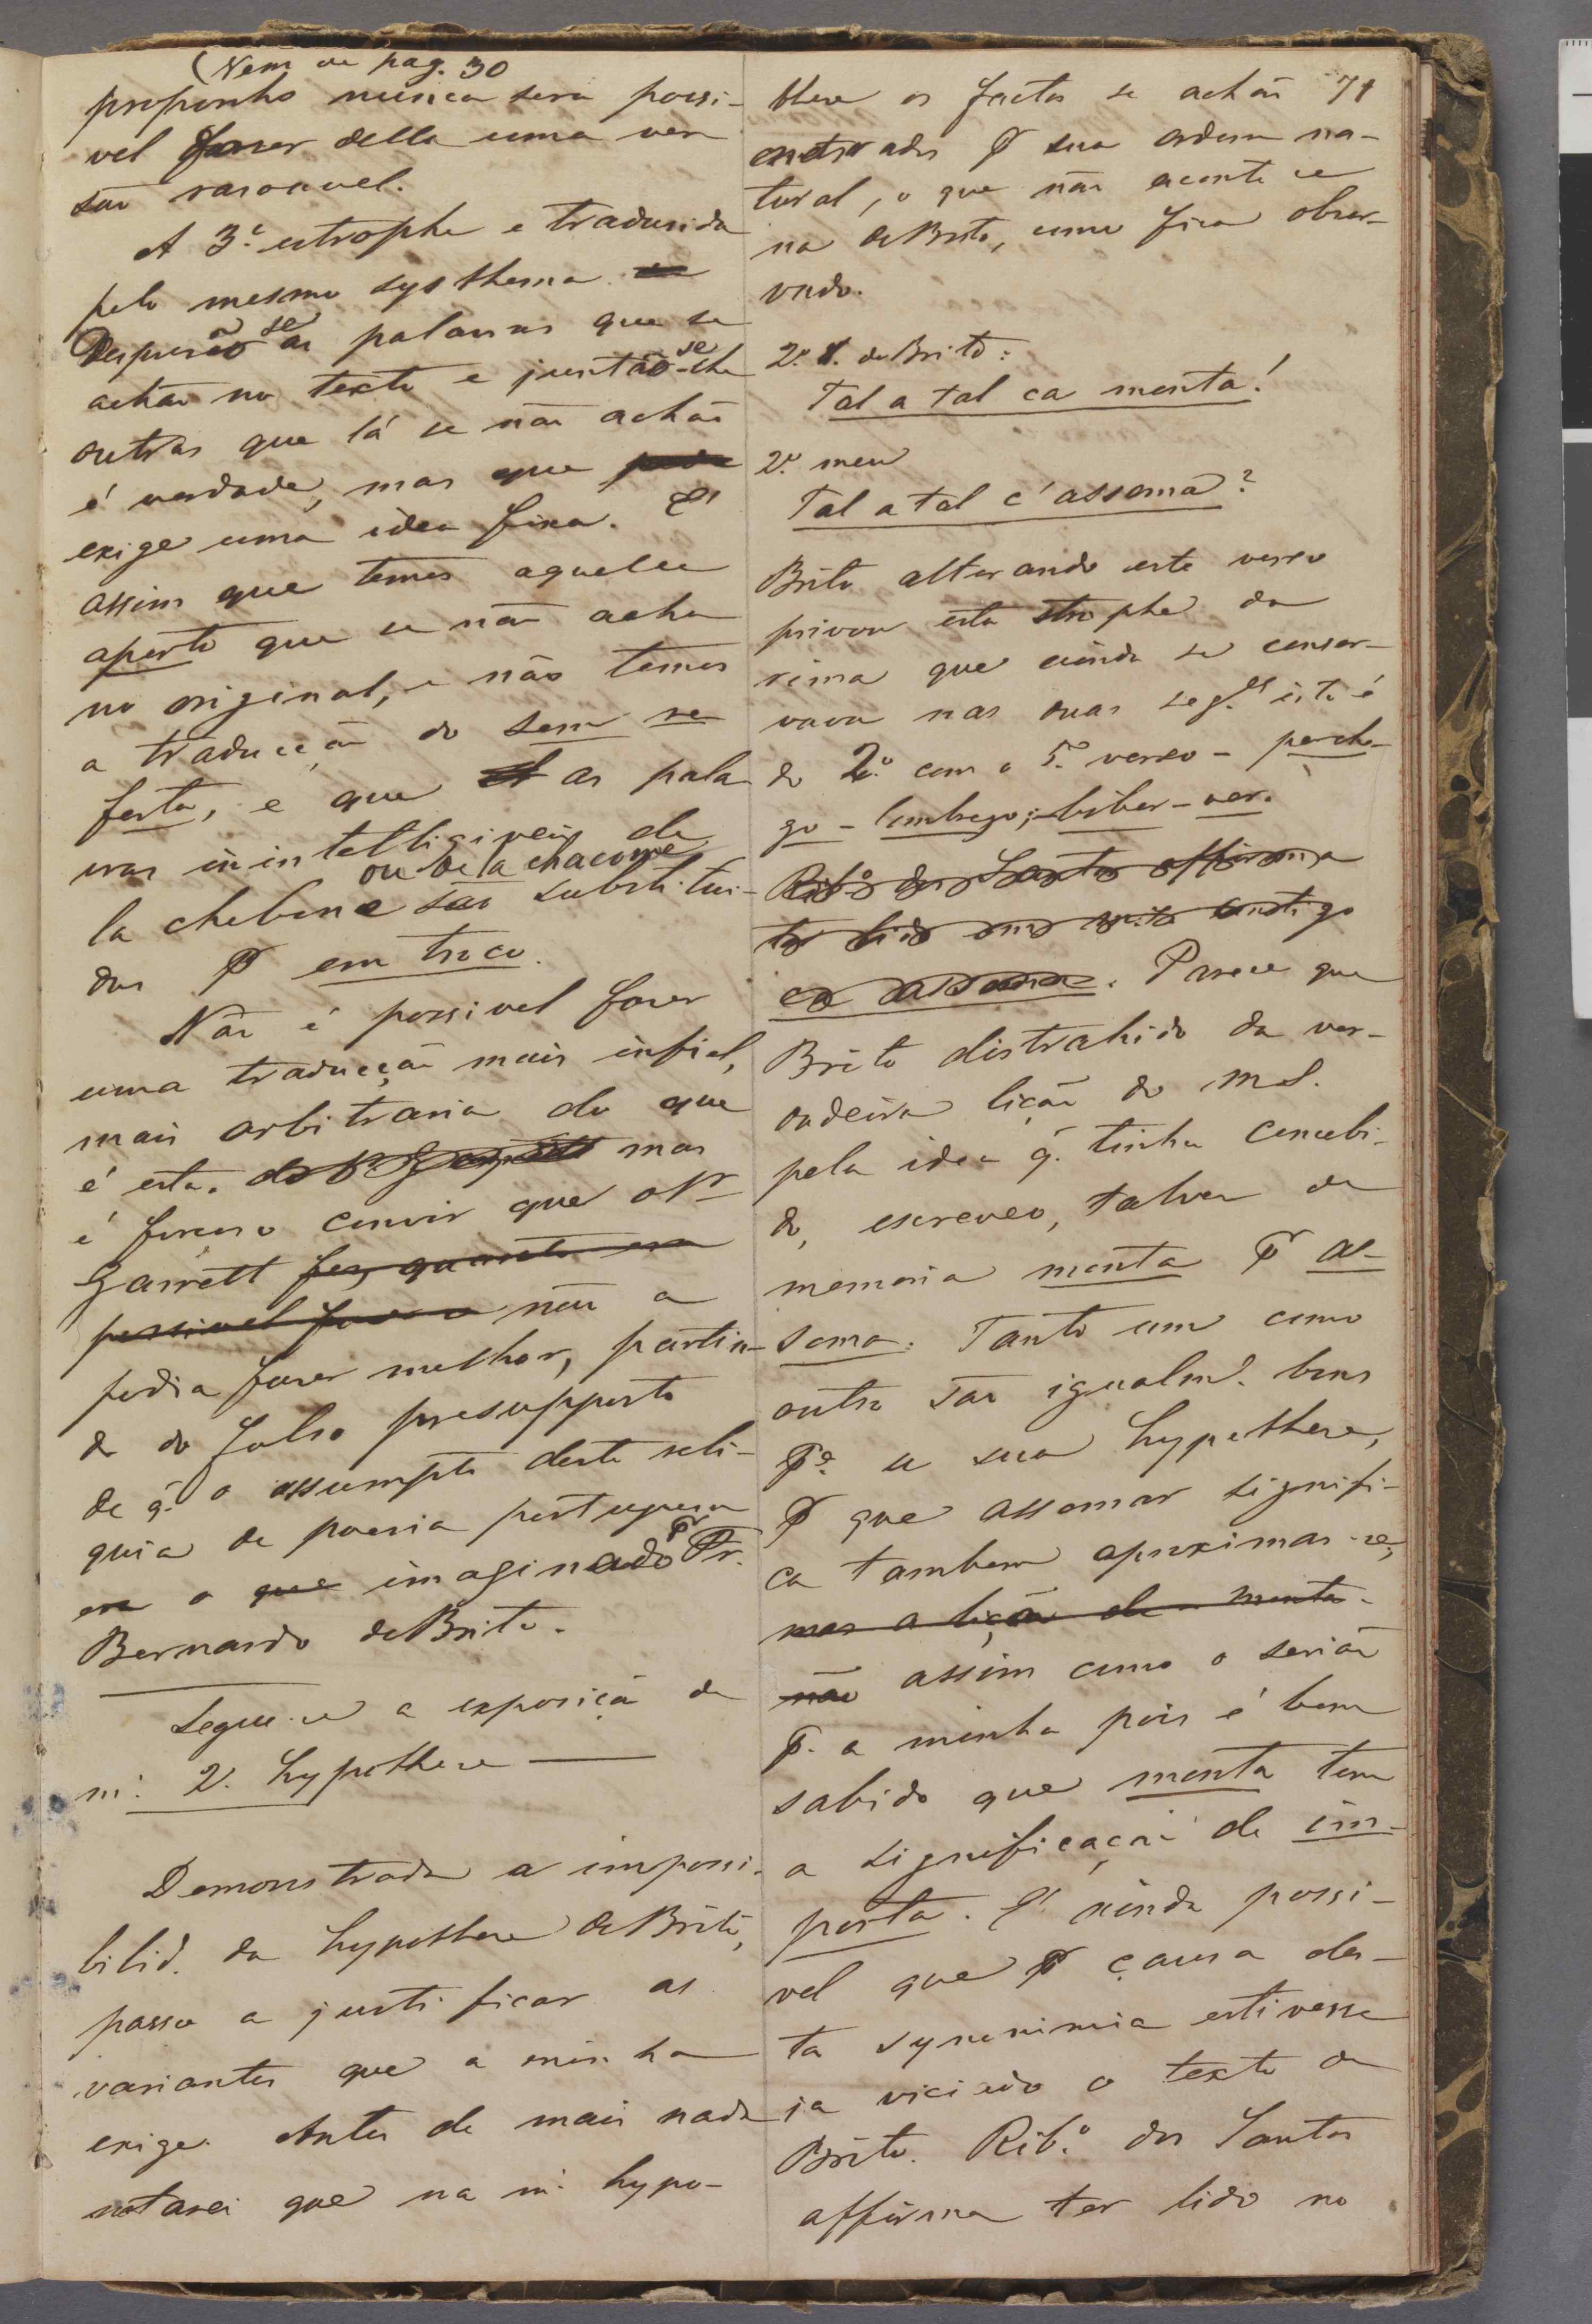 (Vem de pag. 30
proponho nunca sera possi-
vel fazer della uma ver
são rasoavel.
A 3.ª estrophe e tradusida
pelo mesmo systhema.
Despresão se as palavras que se
achão no texto e juntão-se-lhe
outras que lá se não achão
é verdade, mas que
exige uma idea fixa. E'
assim que temos aquelle
aperto que se não acha
no original, e não temos
a traducção do sem re
ferta, e que as pala
vras inintelligiveis de
ou de la chacone
la chebone são substitui-
das P em troco.
Não é possivel fazer
uma traducção mais infiel,
mais arbitraria do que
é esta. mas
é forçoso convir que o Sr
Garrett fez quanto era
possivel fazer não a
podia fazer melhor, partin-
do do falso presupposto
de q. o assumpto desta reli-
quia de poesia portuguesa
era o que imaginado Pr Fr.
Bernardo de Brito.
Segue-se a exposição da
m.ª 2.ª hypothese —
Demonstrada a impossi-
bilid. da hypothese de Brito,
passo a justificar as
variantes que a minha
exige. Antes de mais nada
notarei que na m.ª hypo-
these os factos se achão 71
enetrados P sua ordem na-
tural, o que não acontece
na de Brito, como fica obser-
vado.
2.º V. de Brito:
Tal a tal ca monta!
2.º meu
Tal a tal c'assoma?
Brito alterando este verso
privou esta strophe da
rima que ainda se conser-
vava nas duas seg.es isto é
do 2.º com o 5.º verso - perche-
go - lambrego; - biber - ver.
Rib.º dos Santos affirma
ter lido no
ca assoma. Parece que
Brito distrahido da ver-
dadeira lição do MS.
pela idea q. tinha concebi-
do, escreveo, talvez de
memoria monta Pr as-
soma. Tanto um como
outro são igualm.e bons
P.a a sua hypothese,
P que assomar signifi-
ca tambem aproximar-se,
mas a lição de monta
não assim como o serião
P.a a minha pois é bem
sabido que monta tem
a significação de im-
porta. E' ainda possi-
vel que P causa des-
ta synonimia estivesse
ja viciado o texto de
Brito. Rib.º dos Santos
affirma ter lido no